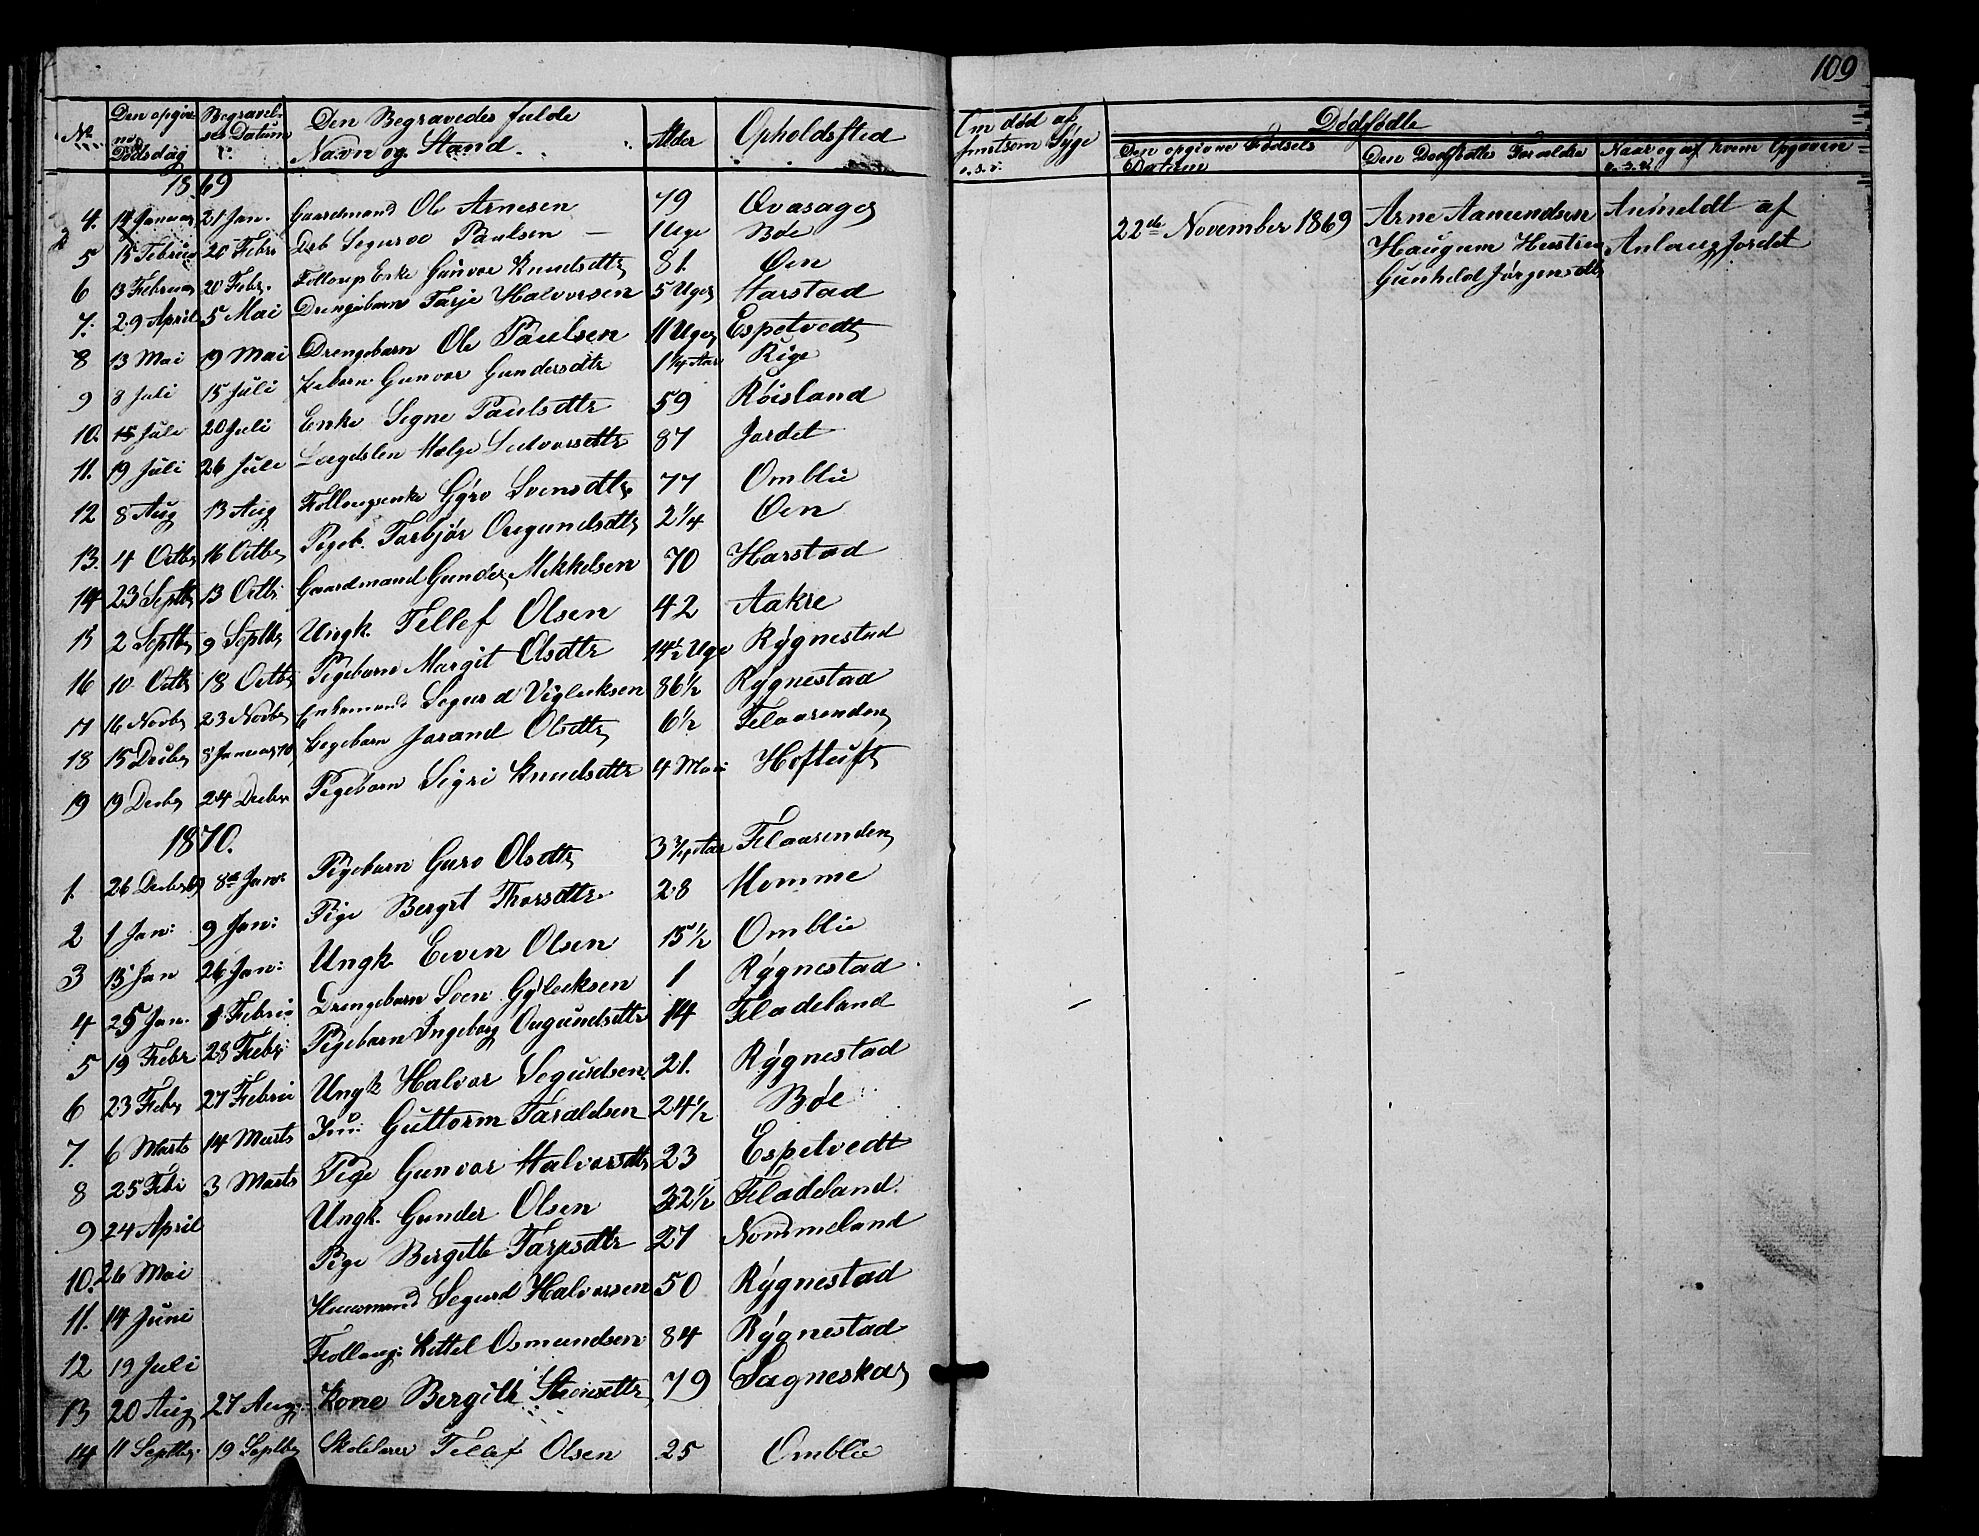 109
No. Den opgivne Dödsdag Begravelses Datum Den Begravedes fulde Navn og Stand Alder Opholdssted
Om död af smitsom Syge o.s.v. Dödfödte
Den opgivne Födsels Datum Den Dödfödtes Forældre Naar og af hvem Opgaven o.s.v.
1869
4. 14 Januar 21 Jan. Gaardmand Ole Arnesen 79
5 15 Februar 20 Febr Segurve Paulsen 1 Uge Bøe
6 13 Februar 20 Febr. Enke Gunvor Knudsdtr 81. Øen
7. 29 April 5 Mai Drengebarn Tarje Halvorsen 5 Uger Harstad
8 13 Mai 19 Mai Drengebarn Ole Paulsen 11 Uger Espetvedt
9 8 Juli 15 Juli Gunvor Gundersdtr 1 1/4 Aar Rige
10. 15 Juli 20 Juli Enke Segne Paulsdtr 59 Røisland
11. 19 Juli 26 Juli Lægdslem Helge 87 Jordet
12 8 Aug 13 Aug Gyro Svensdtr 77 Omblie
13. 4 Octbr 16 Octbr Pigeb. Torbjør Ougundsdtr 2 1/4 Øen
14 23 Septbr 13 Octbr Gaardmand Gunder Mikkelsen 70 Harstad
15 2 Septbr 9 Septbr Ungk. Tellef Olsen 42 Aakre
16 10 Octbr 18 Octbr Pigebarn Margit Olsdtr 14 1/2 Uge Rygnestad
17 16 Novbr 23 Novbr Enkemand Segurd Vigleiksen 86 1/2 Rygnestad
18 15 Decbr 8 Januar 70 Pigebarn Jorand Olsdtr 6 1/2 Flaarenden
19 19 Decbr 24 Decbr Pigebarn Sigri Knudsdtr 4 Hoftuft
1870.
1. 26 Decbr 69 8de Jan: Pigebarn Guro Olsdtr 3 3/4 Aar Flaarenden
2 1 Jan: 9 Jan: Pige Bergit Thorsdtr 28 Homme
3 15 Jan 26 Jan: Ungk. Even Olsen 15 1/2 Omblie
4 25 Jan. 1 Februar Drengebarn Sven 1 Rygnestad
5 19 Febr 28 Febr: Pigebarn Ingeborg Ougundsdtr 14 Fladeland
6 23 Febr 27 Februar Ungk Halvor Segurdsen 21. Rygnestad
7. 6 Marts 14 Marts Guttorm Taraldsen 24 1/2 Bøe
8 25 Febr 3 Marts Pige Gunvor Halvorsdtr 23 Espetvedt
9 24 April Ungk. Gunder Olsen 22 1/2 Fladeland.
10. 26 Mai Pige Bergitte Tarjesdtr 27 Nommeland
11. 14 Juni Huusmand Segurd Halvorsen 50 Rygnestad
12 19 Juli Kittel Osmundsen 84 Rygnestad
13 20 Aug 27 Aug. Kone Bergith 79
14 11 Septbr 19 Septbr Skolelærer Tellef Olsen 25 Omblie
22de November 1869 Arne Aamundsen Anmeldt af
Haugum Hustru Anlaug Jordet
Gunhild Jørgensdtr